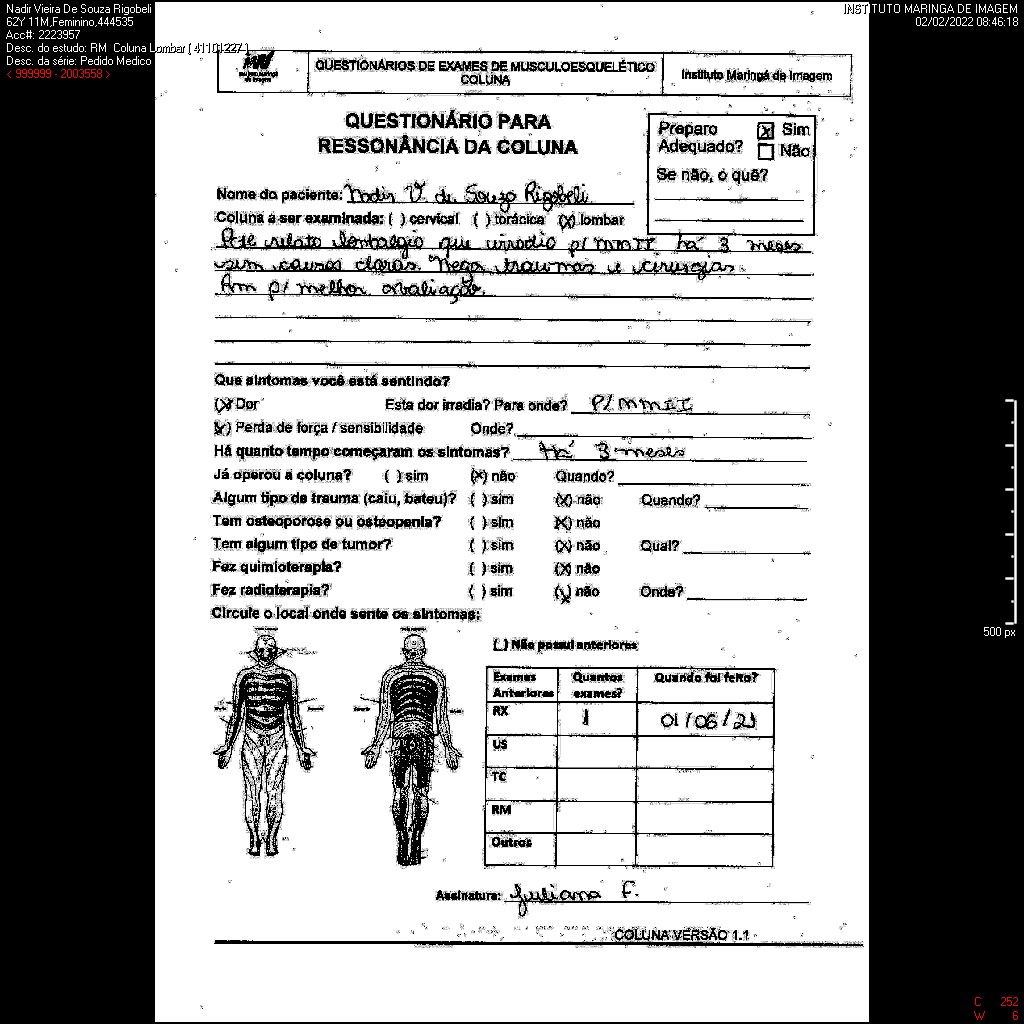 Nadir Vieira De Souza Rigobeli
62Y 11M,Feminino,444535
Acc#: 2223957
Desc. do estudo: RM Coluna Lombar ( 41101227 )
Desc. da série: Pedido Medico
< 999999 - 2003558 >
INSTITUTO MARINGA DE IMAGEM
02/02/2022 08:46:18
QUESTIONÁRIOS DE EXAMES DE MUSCULOESQUELÉTICO
COLUNA
Instituto Maringá de Imagem
QUESTIONÁRIO PARA
RESSONÂNCIA DA COLUNA
Preparo Adequado? (x) Sim
Não
Se não, o quê?
Nome do paciente: Nadir V. de Souza Rigobeli
Coluna a ser examinada: ( ) cervical ( ) torácica (x) lombar
Pcte relata lombalgia que irradia p/ MMII há 3 meses
sem causas claras. Nega traumas e cirurgias.
p/ melhor avaliação.
Que sintomas você está sentindo?
(x) Dor Esta dor irradia? Para onde? P/ MMII
(x) Perda de força / sensibilidade Onde?
Há quanto tempo começaram os sintomas? Há 3 meses
Já operou a coluna? ( ) sim (x) não Quando?
Algum tipo de trauma (caiu, bateu)? ( ) sim (x) não Quando?
Tem osteoporose ou osteopenia? ( ) sim (x) não
Tem algum tipo de tumor? ( ) sim (x) não Qual?
Fez quimioterapia? ( ) sim (x) não
Fez radioterapia? ( ) sim (x) não Onde?
Circule o local onde sente os sintomas:
( ) Não possui anteriores
Exames Anteriores Quantos exames? Quando foi feito?
RX 1 01/06/21
US
TC
RM
Outros
Assinatura: Juliana F.
COLUNA VERSÃO 1.1
500 px
C 252
W 6